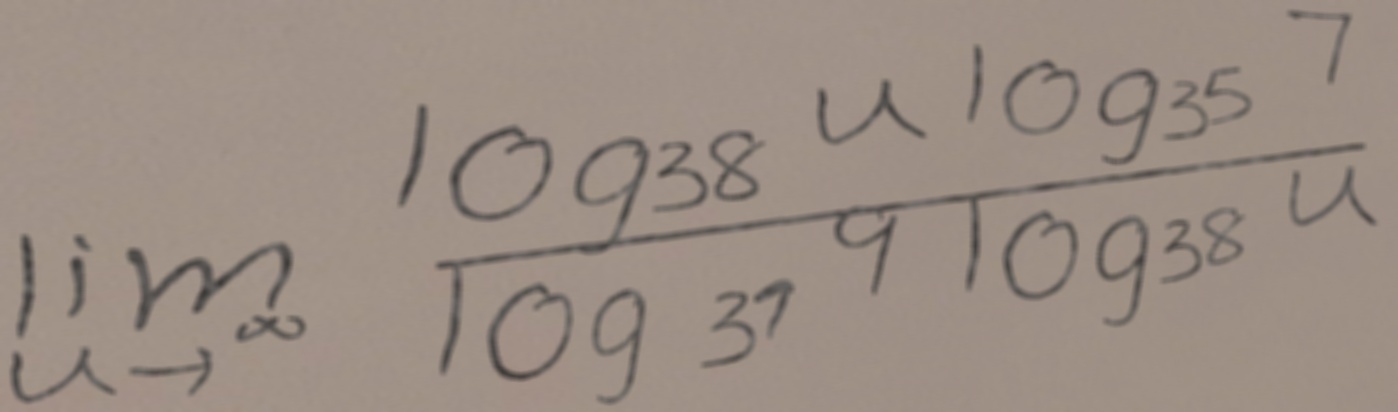 \lim_{u \to \infty} \frac{\log_{38} u \log_{35} 7}{\log_{39} 9 \log_{38} u}